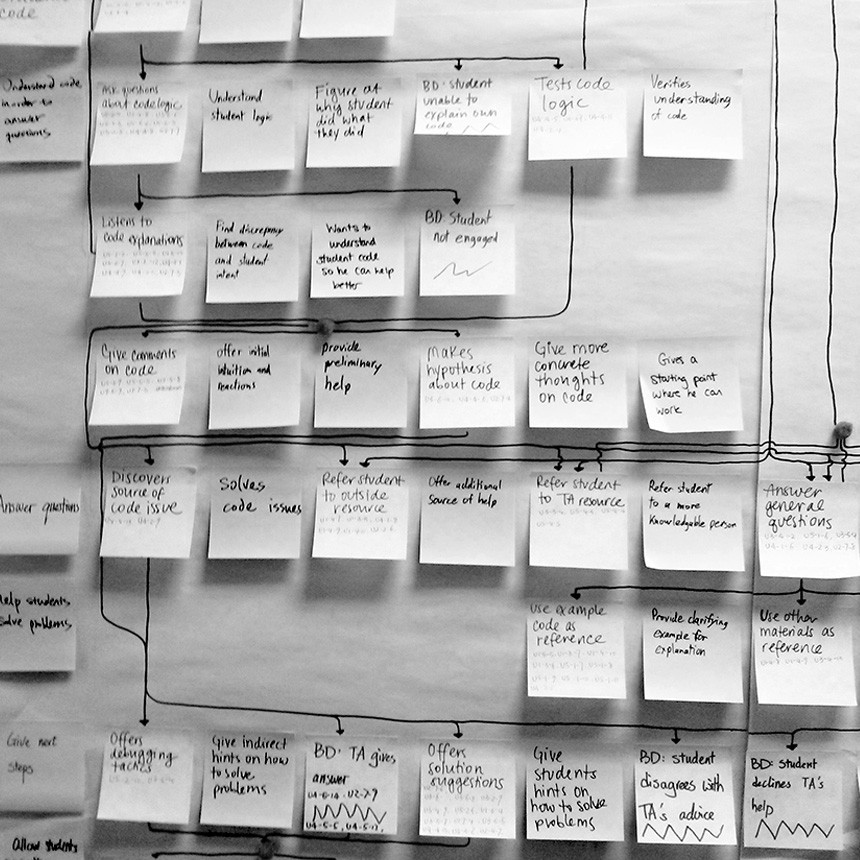 code
Understand code
in order to
answer
questions
Ask questions
about code logic
Understand
student logic
Figure out
why student
did what
they did
BD: student
unable to
explain own
code
Tests code
logic
Verifies
understanding
of code
Listens to
code explanations
Find discrepancy
between code
and student
intent
Wants to
understand
student code
so he can help
better
BD: Student
not engaged
Give comments
on code
offer initial
intuition and
reactions
Provide
preliminary
help
Makes
hypothesis
about code
Give more
concrete
thoughts
on code
Gives a
starting point
where he can
work
Answer questions
Discovers
source of
code issue
Solves
code issues
Refer student
to outside
resource
Offer additional
source of help
Refer student
to TA resource
Refer student
to a more
knowledgable person
Answer
general
questions
Help students
solve problems
Use example
code as
reference
Provide clarifying
example for
explanation
Use other
materials as
reference
Give next
steps
Offers
debugging
tactics
Give indirect
hints on how
to solve
problems
BD: TA gives
answer
Offers
solution
suggestions
Give
students
hints on
how to solve
problems
BD: student
disagrees with
TA's advice
BD: student
declines TA's
help
Allow students